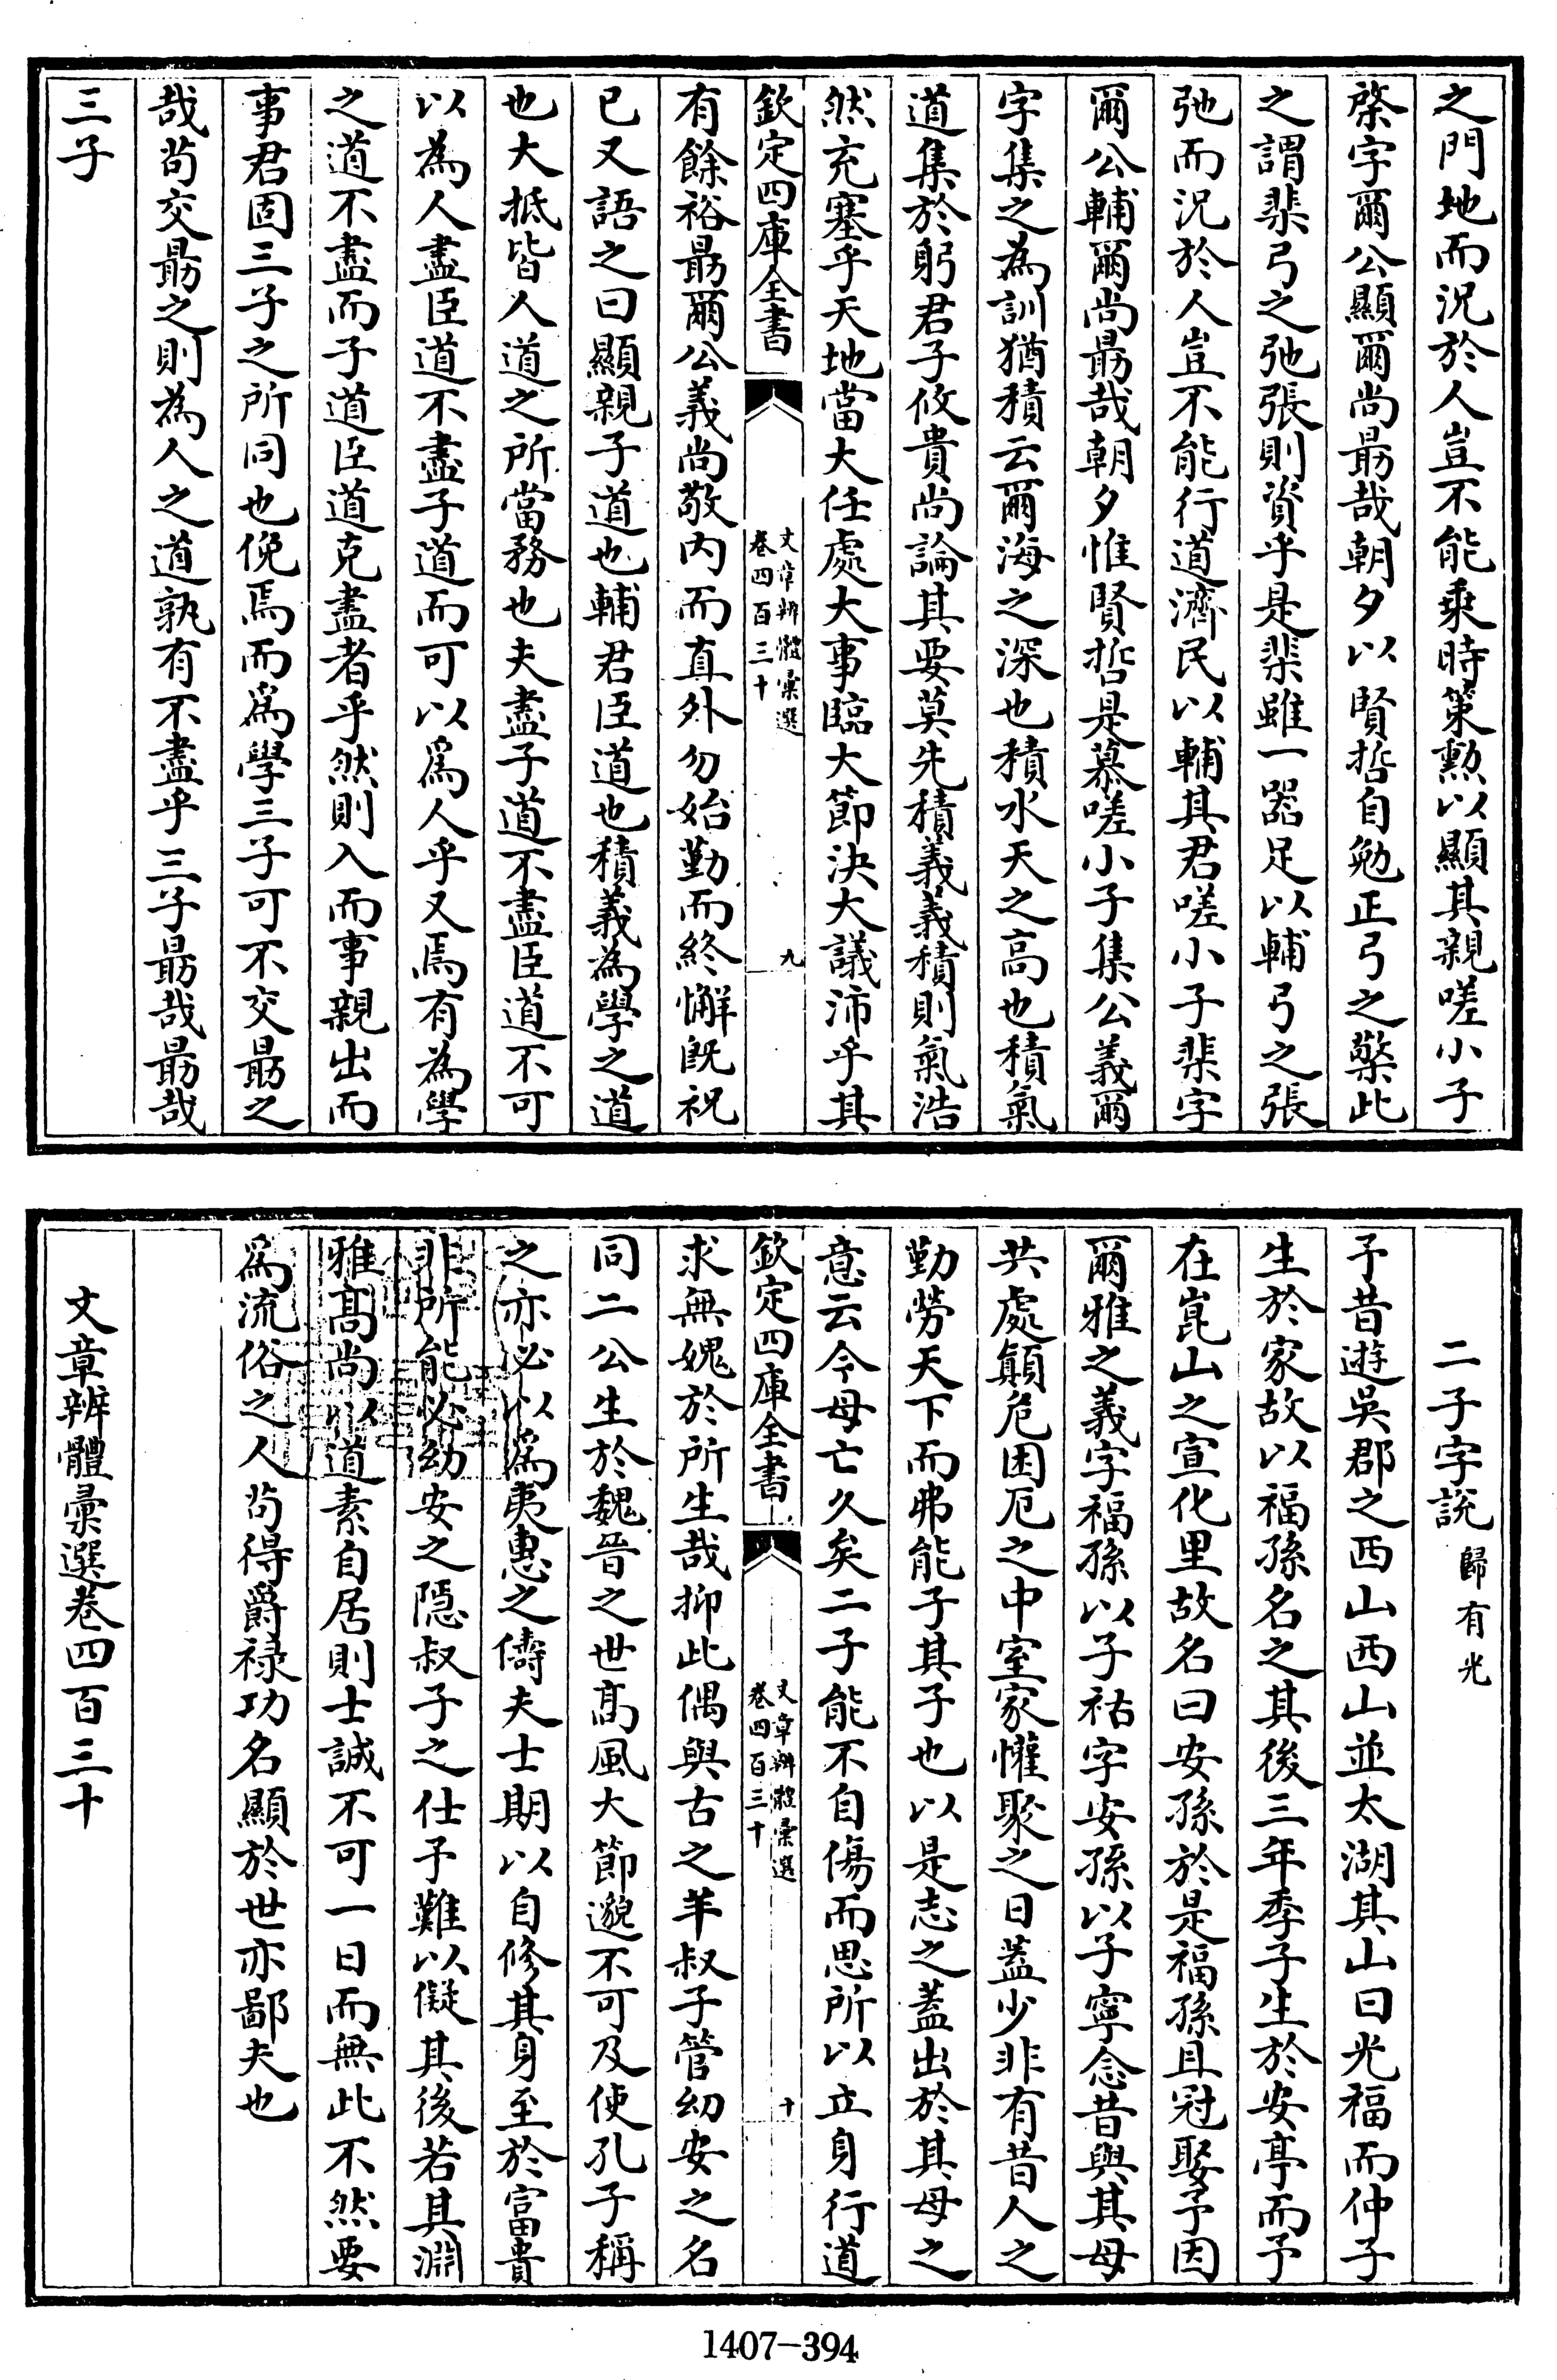 之門地而況於人豈不能乘時策勲以顯其親嗟小子
棨字爾公顯爾尚勗哉朝夕以賢哲自勉正弓之檠此
之謂棐弓之弛張則資乎是棐雖一器足以輔弓之張
弛而況於人豈不能行道濟民以輔其君嗟小子棐字
爾公輔爾尚勗哉朝夕惟賢哲是慕嗟小子集公義爾
字集之為訓猶積云爾海之深也積水天之高也積氣
道集於躬君子攸貴尚論其要莫先積義義積則氣浩
然充塞乎天地當大任處大事臨大節決大議沛乎其
欽定四庫全書
文章辨體彙選
卷四百三十
九
有餘裕勗爾公義尚敬内而直外勿始勤而終懈既祝
已又語之曰顯親子道也輔君臣道也積義為學之道
也大抵皆人道之所當務也夫盡子道不盡臣道不可
以為人盡臣道不盡子道而可以爲人乎又焉有為學
之道不盡而子道臣道克盡者乎然則入而事親出而
事君固三子之所同也俛焉而爲學三子可不交勗之
哉茍交勗之則為人之道孰有不盡乎三子勗哉勗哉
三子
二子字説 歸有光
予昔遊吳郡之西山西山並太湖其山曰光福而仲子
生於家故以福孫名之其後三年季子生於安亭而予
在崑山之宣化里故名曰安孫於是福孫且冠娶予因
爾雅之義字福孫以子祜字安孫以子寧念昔與其母
共處顛危困厄之中室家懽聚之日蓋少非有昔人之
勤勞天下而弗能子其子也以是志之蓋出於其母之
意云今母亡久矣二子能不自傷而思所以立身行道
欽定四庫全書
文章辨體彙選
卷四百三十
十
求無媿於所生哉抑此偶與古之羊叔子管幼安之名
同二公生於魏晉之世髙風大節邈不可及使孔子稱
之亦必以爲夷惠之儔夫士期以自修其身至於富貴
非所能必幼安之隱叔子之仕予難以儗其後若其淵
雅髙尚以道素自居則士誠不可一日而無此不然要
爲流俗之人茍得爵祿功名顯於世亦鄙夫也
文章辨體彙選卷四百三十
1407-394